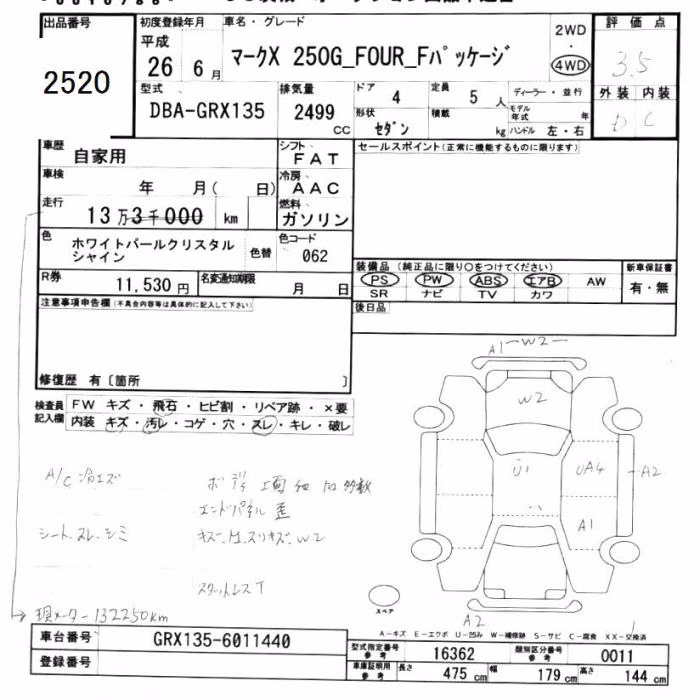 出品番号
2520
初度登録年月
平成
26年 6月
車名・グレード
マークX 250G_FOUR_Fパッケージ
2WD
・
4WD
評価点
3.5
外装 内装
D C
型式
DBA-GRX135
排気量
2499
CC
ドア 4
定員 5 人
ディーラー・並行
モデル年式 年
形状 セダン
積載 kg
ハンドル 左・右
車歴 自家用
シフト FAT
車検 年 月( 日)
冷房 AAC
走行 13万3千000 km
燃料 ガソリン
セールスポイント(正常に機能するものに限ります)
色
ホワイトパールクリスタル
シャイン
色替
色コード
062
R券
11,530円
名変通知期限
月 日
装備品(純正品に限り○をつけてください)
PS PW ABS エアB AW
SR ナビ TV カワ
新車保証書
有・無
注意事項申告欄(不具合内容等は具体的に記入して下さい)
後日品
修復歴 有〔箇所 〕
検査員
記入欄
FW キズ・飛石・ヒビ割・リペア跡・×要
内装 キズ・汚レ・コゲ・穴・スレ・キレ・破レ
A1 W2
W2
U1
UA4
A2
A1
A2
A/C 冷エズ
エンドパネル 歪
シート、スレ、シミ
スタットレスT
現メーター 132250km
スペア
A-キズ E-エクボ U-凹み W-補修跡 S-サビ C-腐食 XX-交換済
車台番号
GRX135-6011440
登録番号
型式指定番号
参考
16362
類別区分番号
参考
0011
車庫証明用
参考
長さ 475 cm
幅 179 cm
高さ 144 cm